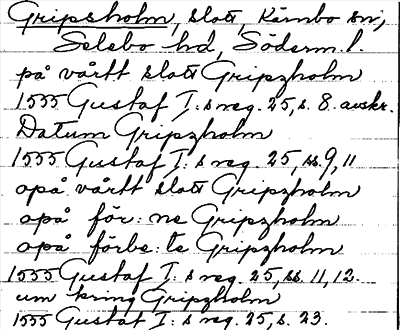 Gripsholm, slott, Kärnbo sn,
Selebo hd, Söderm. l.
på vårtt slott Gripzholm
1555 Gustaf I:s reg. 25, s. 8. avskr.
Datum Gripzholm
1555 Gustaf I:s reg. 25, ss. 9, 11
opå vårtt slott Gripzholm
opå för:ne Gripzholm
opå förbe:te Gripzholm
1555 Gustaf I:s reg. 25, ss. 11, 12.
um kring Gripzholm
1555 Gustaf I:s reg. 25, s. 23.